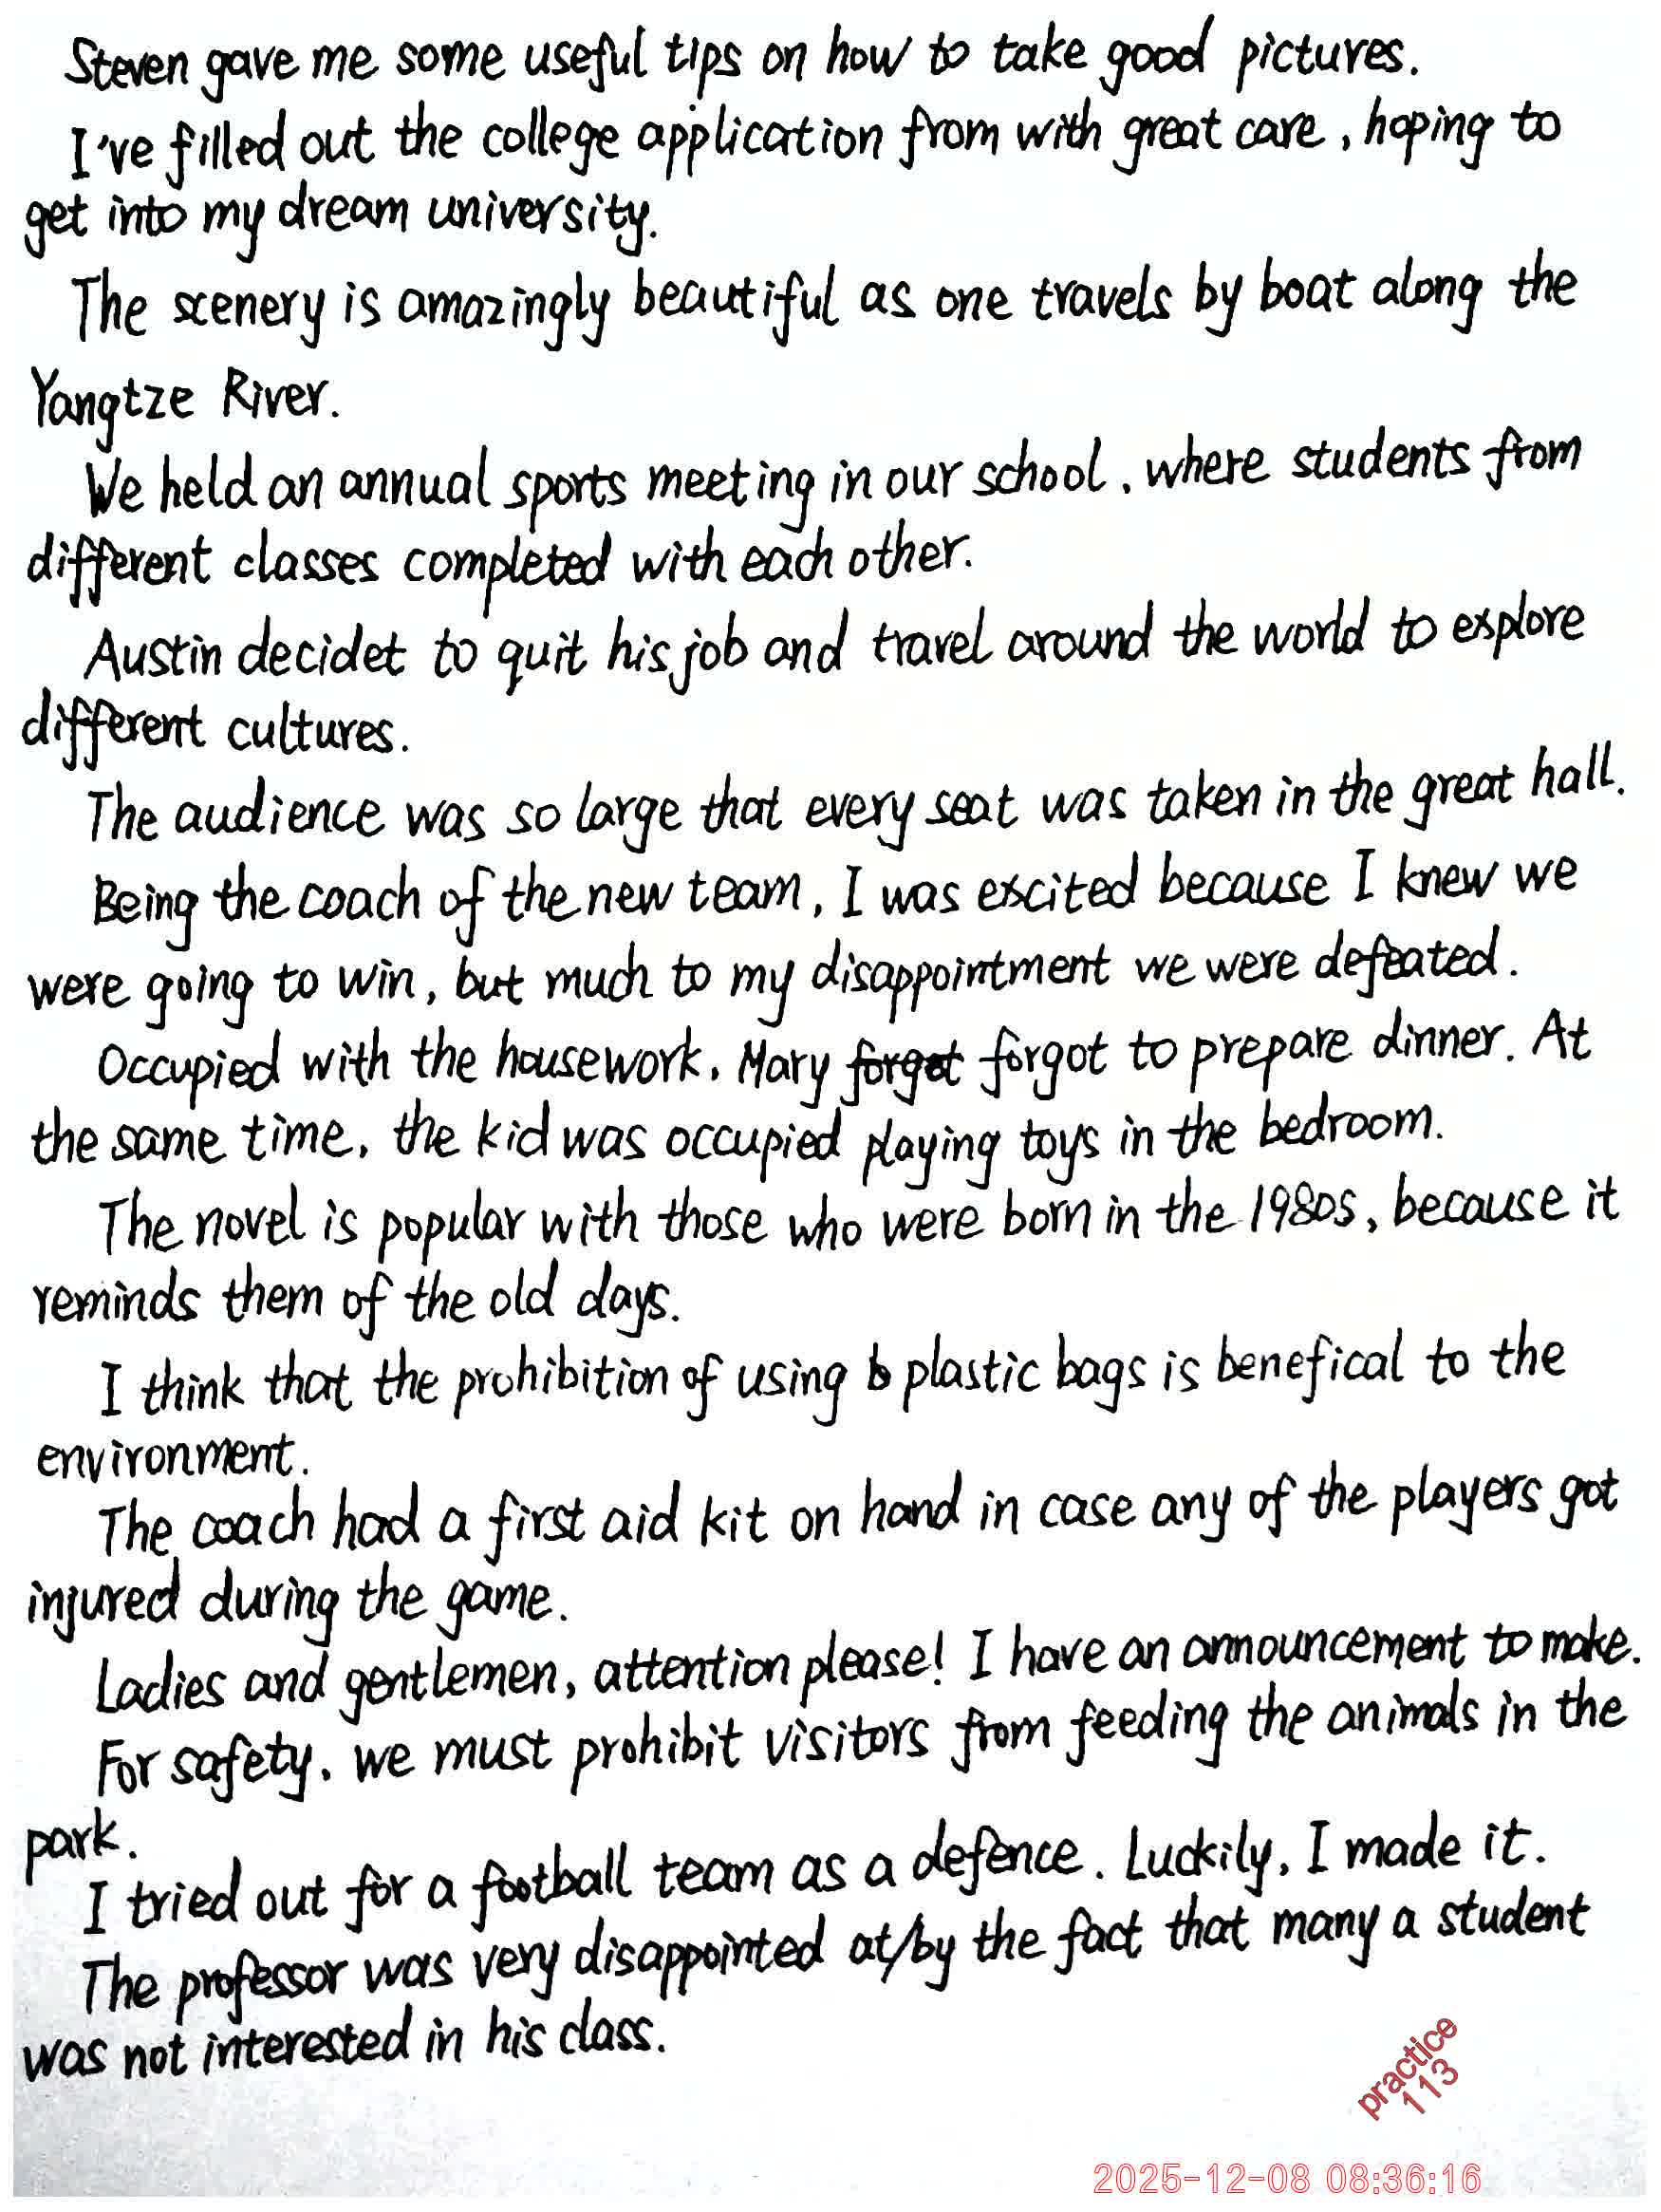 Steven gave me some useful tips on how to take good pictures.
I've filled out the college application from with great care, hoping to
get into my dream university.
The scenery is amazingly beautiful as one travels by boat along the
Yangtze River.
We held an annual sports meeting in our school, where students from
different classes completed with each other.
Austin decidet to quit his job and travel around the world to explore
different cultures.
The audience was so large that every seat was taken in the great hall.
Being the coach of the new team, I was excited because I knew we
were going to win, but much to my disappointment we were defeated.
Occupied with the housework, Mary forgot forgot to prepare dinner. At
the same time, the kid was occupied playing toys in the bedroom.
The novel is popular with those who were born in the 1980s, because it
reminds them of the old days.
I think that the prohibition of using b plastic bags is benefical to the
environment.
The coach had a first aid kit on hand in case any of the players got
injured during the game.
Ladies and gentlemen, attention please! I have an announcement to make.
For safety, we must prohibit visitors from feeding the animals in the
park.
I tried out for a football team as a defence. Luckily, I made it.
The professor was very disappointed at/by the fact that many a student
was not interested in his class.
practice
113
2025-12-08 08:36:16